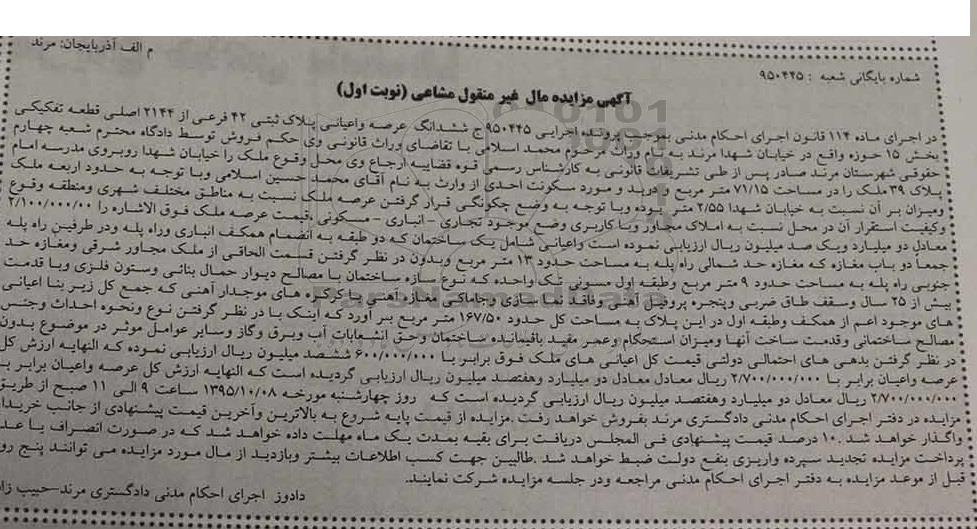 م الف آذربایجان: مرند
شماره بایگانی شعبه : ۹۵۰۴۴۵
آگهی مزایده مال غیر منقول مشاعی (نوبت اول)
در اجرای ماده ۱۱۴ قانون اجرای احکام مدنی بموجب پرونده اجرایی ۹۵۰۴۴۵ ج ششدانگ عرصه واعیانی پلاک ثبتی ۴۲ فرعی از ۲۱۴۴ اصلی قطعه تفکیکی
بخش ۱۵ حوزه واقع در خیابان شهدا مرند به نام وراث مرحوم محمد اسلامی با تقاضای وراث قانونی وی حکم فروش توسط دادگاه محترم شعبه چهارم
حقوقی شهرستان مرند صادر پس از طی تشریفات قانونی به کارشناس رسمی قوه قضاییه ارجاع وی محل وقوع ملک را خیابان شهدا روبروی مدرسه امام
پلاک ۳۹ ملک را در مساحت ۷۱/۱۵ متر مربع و دربند و مورد سکونت احدی از وارث به نام آقای محمد حسین اسلامی وبا توجه به حدود اربعه ملک
ومیزان بر آن نسبت به خیابان شهدا ۲/۵۵ متر بوده وبا توجه به وضع چگونگی قرار گرفتن عرصه ملک نسبت به مناطق مختلف شهری ومنطقه وقوع
وکیفیت استقرار آن در محل نسبت به املاک مجاور وبا کاربری وضع موجود تجاری - انباری - مسکونی ,قیمت عرصه ملک فوق الاشاره را ۲/۱۰۰/۰۰۰/۰۰
معادل دو میلیارد ویک صد میلیون ریال ارزیابی نموده است واعیانی شامل یک ساختمان که دو طبقه به انضمام همکف انباری وراه پله ودر طرفین راه پله
جمعا دو باب مغازه که مغازه حد شمالی راه پله به مساحت حدود ۱۳ متر مربع وبدون در نظر گرفتن قسمت الحاقی از ملک مجاور شرقی ومغازه حد
جنوبی راه پله به مساحت حدود ۹ متر مربع وطبقه اول مسونی تک واحده که نوع سازه ساختمان با مصالح دیوار حمال بنائی وستون فلزی وبا قدمت
بیش از ۲۵ سال وسقف طاق ضربی وپنجره پروفیل آهنی وفاقد نما سازی وجاماکی مغازه آهنی با کرکره های موجدار آهنی که جمع کل زیر بنا اعیانی
های موجود اعم از همکف وطبقه اول در این پلاک به مساحت کل حدود ۱۶۷/۵۰ متر مربع بر آورد که اینک با در نظر گرفتن نوع ونحوه احداث وجنس
مصالح ساختمانی وقدمت ساخت آنها ومیزان استحکام وعمر مفید باقیمانده ساختمان وحق انشعابات آب وبرق وگاز وسایر عوامل موثر در موضوع بدون
در نظر گرفتن بدهی های احتمالی دولتی قیمت کل اعیانی های ملک فوق برابر با ۶۰۰/۰۰۰/۰۰۰ ششصد میلیون ریال ارزیابی نموده که النهایه ارزش کل
عرصه واعیان برابر با ۲/۷۰۰/۰۰۰/۰۰۰ ریال معادل معادل دو میلیارد وهفتصد میلیون ریال ارزیابی گردیده است که النهایه ارزش کل عرصه واعیان برابر با
۲/۷۰۰/۰۰۰/۰۰۰ ریال معادل دو میلیارد وهفتصد میلیون ریال ارزیابی گردیده است که روز چهارشنبه مورخه ۱۳۹۵/۱۰/۰۸ ساعت ۹ الی ۱۱ صبح از طریق
مزایده در دفتر اجرای احکام مدنی دادگستری مرند بفروش خواهد رفت .مزایده از قیمت پایه شروع به بالاترین وآخرین قیمت پیشنهادی از جانب خریدا
واگذار خواهد شد .۱۰ درصد قیمت پیشنهادی فی المجلس دریافت برای بقیه بمدت یک ماه مهلت داده خواهد شد که در صورت انصراف یا عد
پرداخت مزایده تجدید سپرده واریزی بنفع دولت ضبط خواهد شد .طالبین جهت کسب اطلاعات بیشتر وبازدید از مال مورد مزایده می توانند پنج رو
قبل از موعد مزایده به دفتر اجرای احکام مدنی مراجعه ودر جلسه مزایده شرکت نمایند.
دادوز اجرای احکام مدنی دادگستری مرند-حبیب زا